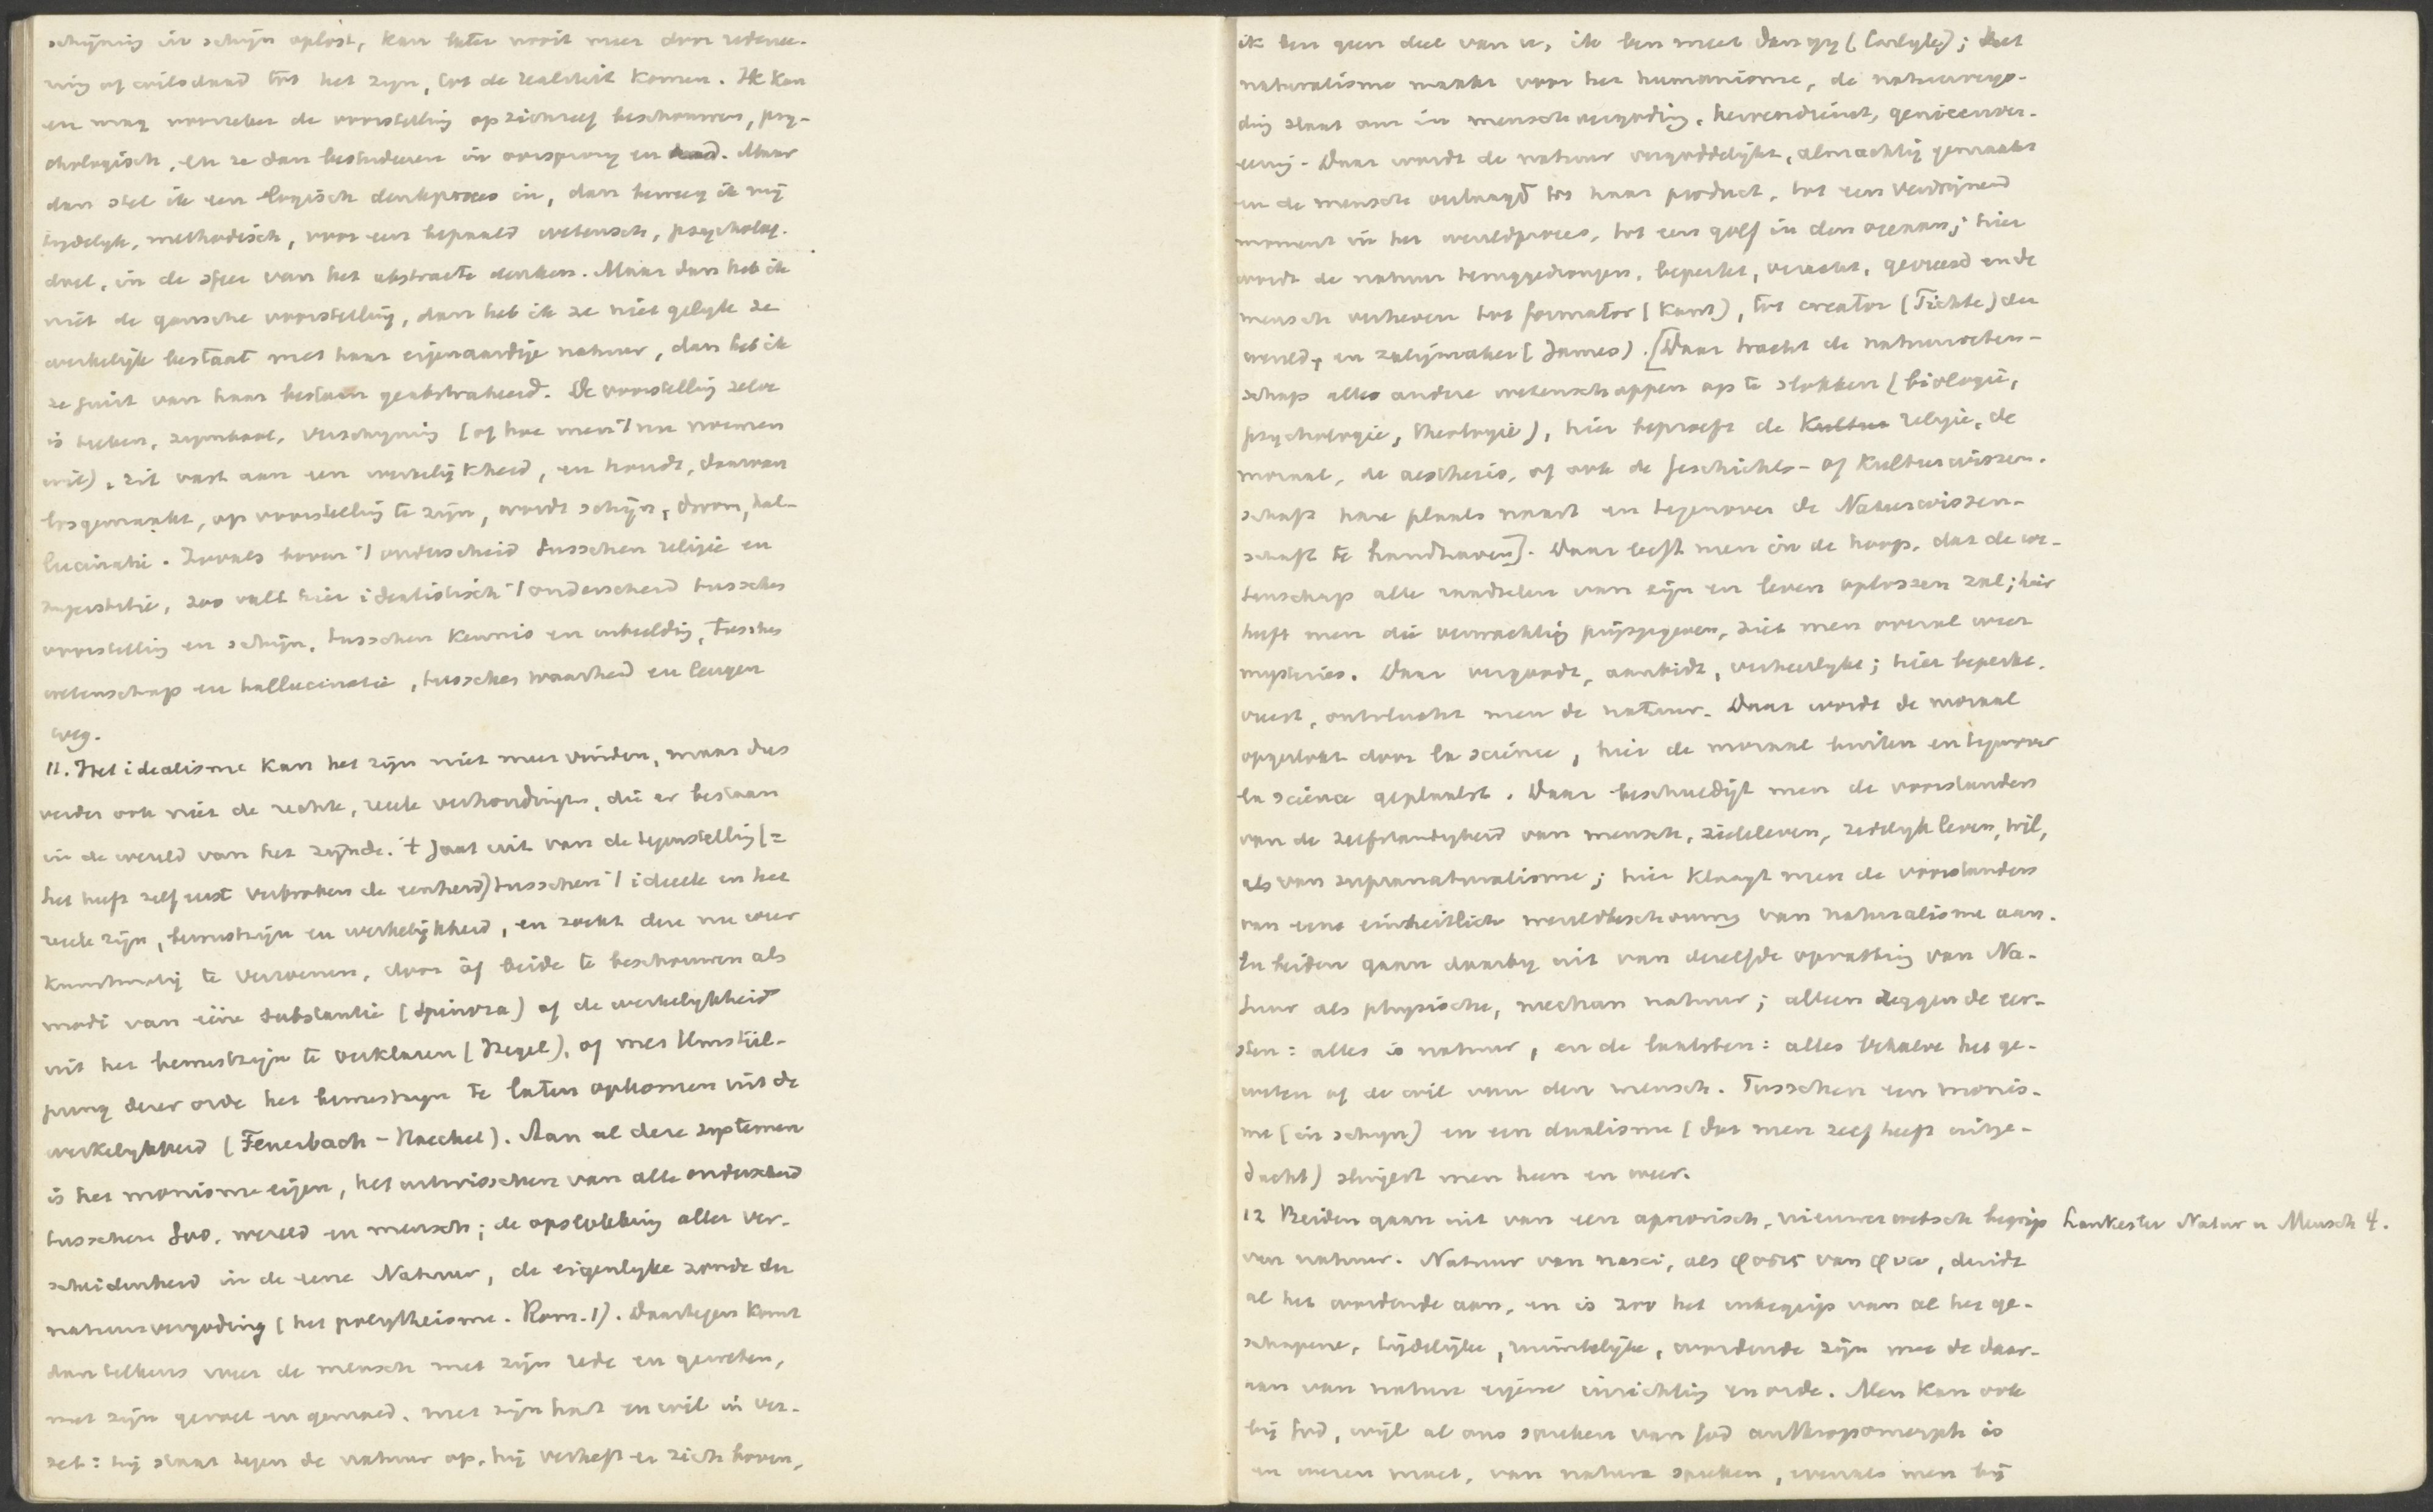 schijning in schijn oplost, kan later nooit meer door redenee-
ring of wilsdaad tot het zijn, tot de realiteit komen. Ik kan
en mag voorzeker de voorstelling op zichzelf beschouwen, psy-
chologisch, en ze dan bestudeeren in oorsprong en. Maar
dan stel ik een logisch denkproces in, dan beweeg ik mij
tijdelijk, methodisch, voor een bepaald wetensch, psycholog.
doel, in de sfeer van het abstracte denken. Maar dan heb ik
niet de gansche voorstelling, dan heb ik ze niet gelijk ze
werkelijk bestaat met haar eigenaardige natuur, dan heb ik
ze juist van haar bestaan geabstraheerd. De voorstelling zelve
is teeken, symbool, verschijning (of hoe men 't nu noemen
wil), zit vast aan een werkelijkheid, en houdt, daarvan
losgemaakt, op voorstelling te zijn, wordt schijn, droom, hal-
lucinatie. Zooals boven 't onderscheid tusschen religie en
superstitie, zoo valt hier idealistisch 't onderscheid tusschen
voorstelling en schijn, tusschen kennis en inbeeldig, tusschen
wetenschap en hallucinatie, tusschen waarheid en leugen
weg.
11. Het idealisme kan het zijn niet meer vinden, maar dus
verder ook niet de rechte, reele verhoudingen, die er bestaan
in de wereld van het zijnde. 't Gaat uit van de tegenstelling (=
het heeft zelf eerst verbroken de eenheid) tusschen 't ideele en het
reele zijn, bewustzijn en werkelijkheid, en zoekt deze nu weer
kunstmatig te verzoenen, door òf beide te beschouwen als
modi van ééne substantie (Spinoza) of de werkelijkheid
uit het bewustzijn te verklaren (Hegel), of met Umstül-
pung dezer orde het bewustzijn te laten opkomen uit de
werkelijkheid (Feuerbach - Haeckel). Aan al deze systemen
is het monisme eigen, het uitwisschen van alle onderscheid
tusschen God, wereld en mensch; de opslokking aller ver-
scheidenheid in de eene Natuur, de eigenlijke zonde der
natuurvergoding (het polytheisme. Rom. 1). Daartegen komt
dan telkens weer de mensch met zijn rede en geweten,
met zijn gevoel en gemoed, met zijn hart en wil in ver-
zet: hij staat tegen de natuur op, hij verheft er zich boven,
ik ben geen deel van u, ik ben meer dan gij (Carlyle); het
naturalisme maakt voor het humanisme, de natuurvergo-
ding slaat om in menschvergoding, heroendienst, genieenver-
eering. Daar wordt de natuur vergoddelijkt, almachtig gemaakt
en de mensch verlaagd tot haar product, tot een verdwijnend
moment in het wereldproces, tot een golf in den oceaan; hier
wordt de natuur teruggedrongen, beperkt, veracht, gevreesd en de
mensch verheven tot formator (Kant), tot creator (Fichte) der
wereld, en zaligmaker (James). [Daar tracht de natuurweten-
schap alle andere wetenschappen op te slokken (biologie,
psychologie, theologie), hier beproeft de Kultur religie, de
moraal, de aesthesis, of ook de Geschichts- of Kulturwissen-
schaft hare plaats naast en tegenover de Naturwissen-
schaft te handhaven]. Daar leeft men in de hoop, dat de we-
tenschap alle raadselen van zijn en leven oplossen zal; hier
heeft men die verwachting prijsgegeven, ziet men overal weer
mysteries. Daar vergoodt, aanbidt, verheerlijkt; hier beperkt,
vreest, ontvlucht men de natuur. Daar wordt de moraal
opgeslokt door la science, hier de moraal buiten en tegenover
la science geplaatst. Daar beschuldigt men de voorstanders
van de zelfstandigheid van mensch, zieleleven, zedelijk leven, wil,
als van supranaturalisme; hier klaagt men de voorstanders
van eene einheitliche wereldbeschouwing van naturalisme aan.
En beiden gaan daarbij uit van dezelfde opvatting van Na-
tuur als physische, mechan natuur; alleen zeggen de eer-
sten: alles is natuur, en de laatsten: alles behalve het ge-
weten of de wil van den mensch. Tusschen een monis-
me (in schijn) en een dualisme (dat men zelf heeft uitge-
dacht) slingert men heen en weer.
12 Beiden gaan uit van een apriorisch, nieuwerwetsch begrip Lankester Natur u Mensch 4.
van natuur. Natuur van nasci, als φυσις van φυω, duidt
al het wordende aan, en is zoo het inbegrip van al het ge-
schapene, tijdelijke, ruimtelijke, wordende zijn met de daar-
aan van nature eigene inrichting en orde. Men kan ook
bij God, wijl al ons spreken van God anthropomorph is
en wezen moet, van natuur spreken, evenals men bij